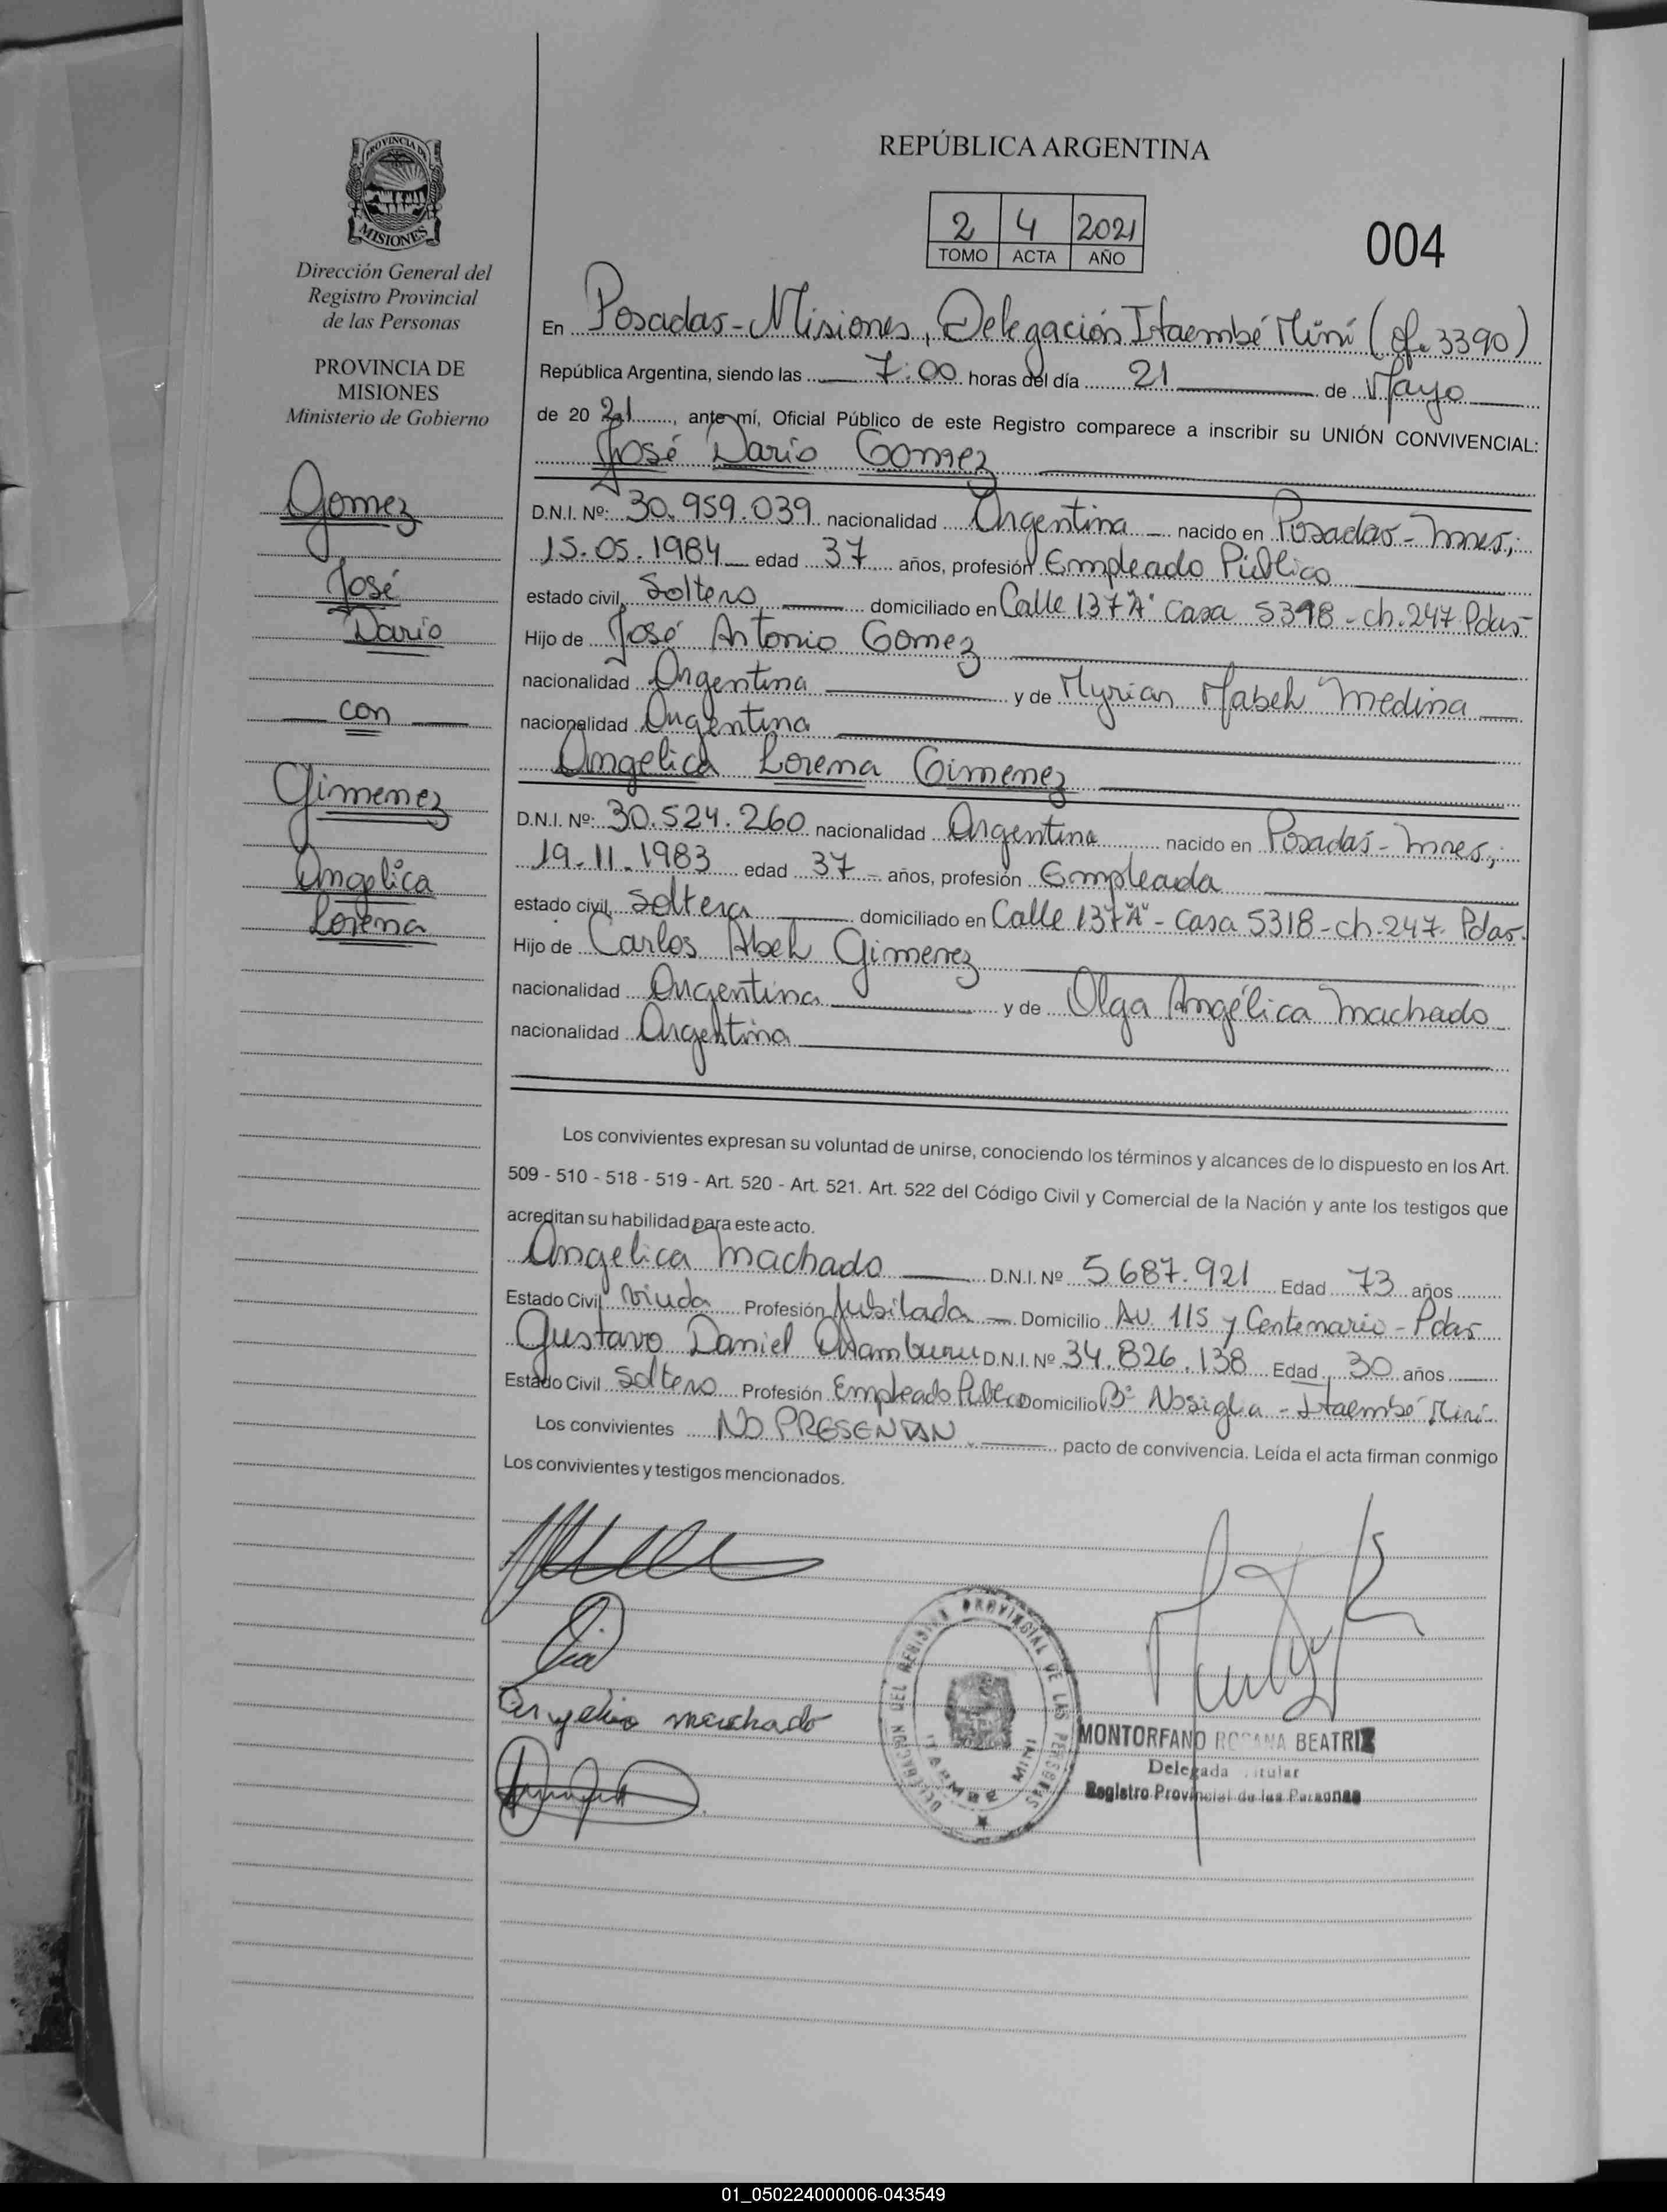 REPÚBLICA ARGENTINA
2 4 2021
TOMO ACTA AÑO
004
PROVINCIA DE
MISIONES
Dirección General del
Registro Provincial
de las Personas
PROVINCIA DE
MISIONES
Ministerio de Gobierno
Gomez
José
Dario
con
Gimenez
Angelica
Lorena
En Posadas - Misiones, Delegación Itaembé Miní (of. 3390)
República Argentina, siendo las 7:00 horas del día 21 de Mayo
de 20 21, ante mí, Oficial Público de este Registro comparece a inscribir su UNIÓN CONVIVENCIAL:
José Dario Gomez
D.N.I. Nº: 30.959.039 nacionalidad Argentina nacido en Posadas - Mnes;
15.05.1984 edad 37 años, profesión Empleado Público
estado civil Soltero domiciliado en Calle 137 "A" Casa 5398 - ch. 247 Pdas
Hijo de José Antonio Gomez
nacionalidad Argentina y de Myrian Mabel Medina
nacionalidad Argentina
Angelica Lorena Gimenez
D.N.I. Nº: 30.524.260 nacionalidad Argentina nacido en Posadas - Mnes;
19.11.1983 edad 37 años, profesión Empleada
estado civil Soltera domiciliado en Calle 137 "A" - Casa 5318 - ch. 247 Pdas.
Hijo de Carlos Abel Gimenez
nacionalidad Argentina y de Olga Angélica Machado
nacionalidad Argentina
Los convivientes expresan su voluntad de unirse, conociendo los términos y alcances de lo dispuesto en los Art.
509 - 510 - 518 - 519 - Art. 520 - Art. 521. Art. 522 del Código Civil y Comercial de la Nación y ante los testigos que
acreditan su habilidad para este acto.
Angelica Machado D.N.I. Nº 5.687.921 Edad 73 años
Estado Civil Viuda Profesión Jubilada Domicilio AV. 115 y Centenario - Pdas
Gustavo Daniel D.N.I. Nº 34.826.138 Edad 30 años
Estado Civil Soltero Profesión Empleado Público Domicilio Bº Nosiglia - Itaembé Miní
Los convivientes NO PRESENTAN pacto de convivencia. Leída el acta firman conmigo
Los convivientes y testigos mencionados.
Angelica Machado
DELEGACION DEL REGISTRO PROVINCIAL DE LAS PERSONAS
ITAEMBE MINI
MONTORFANO ROSANA BEATRIZ
Delegada Titular
Registro Provincial de las Personas
01_050224000006-043549